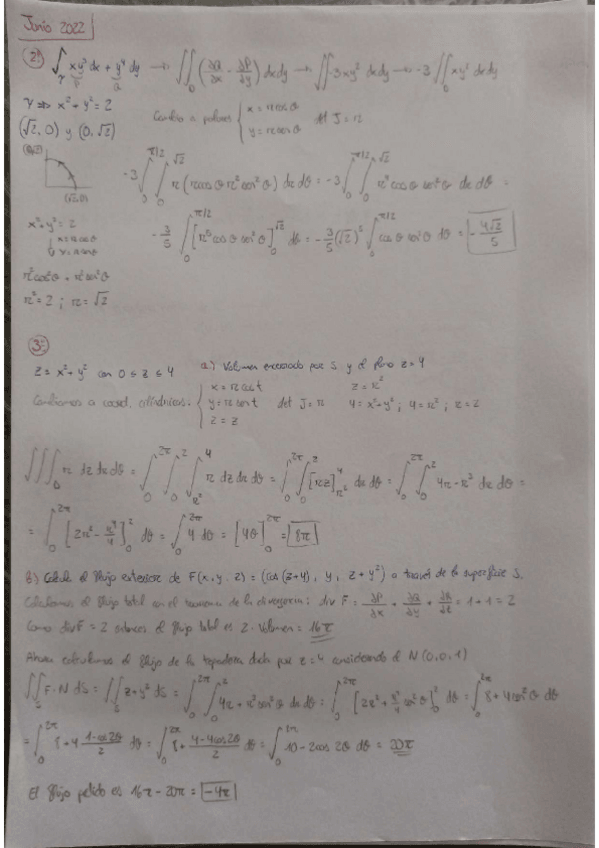 Junio 2022
2º) ∫_γ xy³ dx + y⁴ dy → ∬_D (∂Q/∂x - ∂P/∂y) dx dy → ∬ -3xy² dx dy → -3 ∬_D xy² dx dy
P Q
γ ⇒ x² + y² = 2
(√2, 0) y (0, √2)
Cambio a polares { x = r cos θ
y = r sen θ det J = r
(0,√2)
(√2,0)
-3 ∫_0^{π/2} ∫_0^{√2} r (r cos θ r² sen² θ) dr dθ = -3 ∫_0^{π/2} ∫_0^{√2} r⁴ cos θ sen² θ dr dθ =
x² + y² = 2
↓ x = r cos θ
y = r sen θ
-3/5 ∫_0^{π/2} [r⁵ cos θ sen² θ]_0^{√2} dθ = -3/5 (√2)⁵ ∫_0^{π/2} cos θ sen² θ dθ = -4√2/5
r² cos² θ + r² sen² θ
r² = 2 ; r = √2
3º)
z = x² + y² con 0 ≤ z ≤ 4 a.) Volumen encerrado por S y el plano z = 4
Cambiamos a coord. cilíndricas: { x = r cos t
y = r sen t det J = r
z = z
z = r²
4 = x² + y² ; 4 = r² ; r = 2
∭_D r dz dr dθ = ∫_0^{2π} ∫_0^2 ∫_{r²}^4 r dz dr dθ = ∫_0^{2π} ∫_0^2 [rz]_{r²}^4 dr dθ = ∫_0^{2π} ∫_0^2 4r - r³ dr dθ =
= ∫_0^{2π} [2r² - r⁴/4]_0^2 dθ = ∫_0^{2π} 4 dθ = [4θ]_0^{2π} = 8π
b) Calcula el flujo exterior de F(x, y, z) = (cos(z+y), y, z + y²) a través de la superficie S.
Calculamos el flujo total con el teorema de la divergencia: div F = ∂P/∂x + ∂Q/∂y + ∂R/∂z = 1 + 1 = 2
Como div F = 2 entonces el flujo total es 2 · Volumen = 16π
Ahora calculamos el flujo de la tapadera dada por z = 4 considerando el N (0, 0, 1)
∬_S F · N dS = ∬_S z + y² dS = ∫_0^{2π} ∫_0^2 4r + r³ sen² θ dr dθ = ∫_0^{2π} [2r² + r⁴/4 sen² θ]_0^2 dθ = ∫_0^{2π} 8 + 4 sen² θ dθ
= ∫_0^{2π} 8 + 4 (1 - cos 2θ)/2 = ∫_0^{2π} 8 + (4 - 4 cos 2θ)/2 dθ = ∫_0^{2π} 10 - 2 cos 2θ dθ = 20π
El flujo pedido es 16π - 20π = -4π